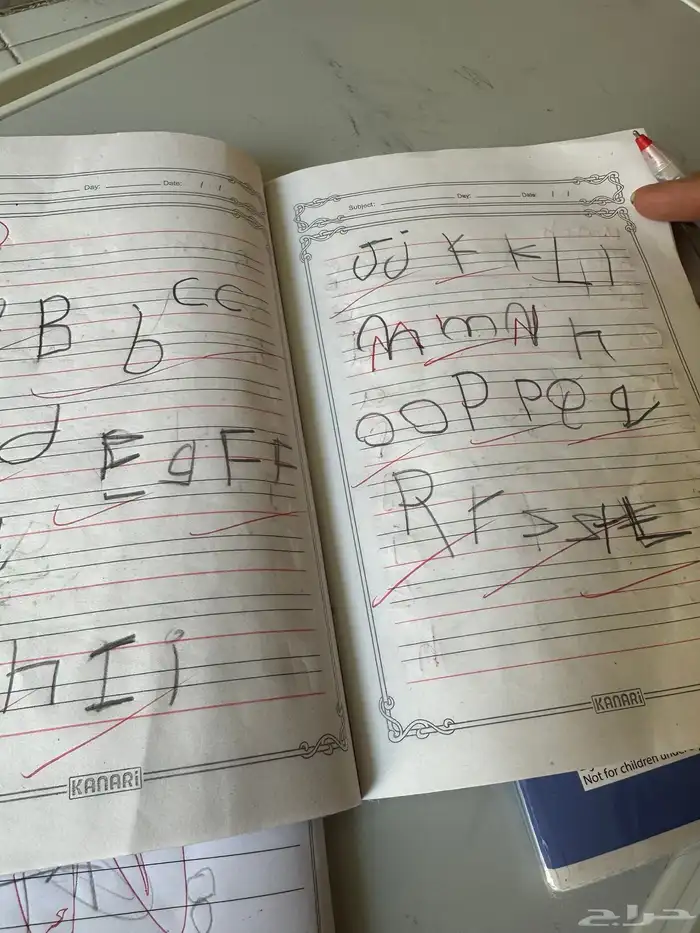 Day: Date: / /
B b c c
d E e F F
h I i
KANARi
Subject: Day: Date: / /
J j K k L l
M m N n
O O P P Q q
R r S s t t
KANARi
Not for children under
حراج